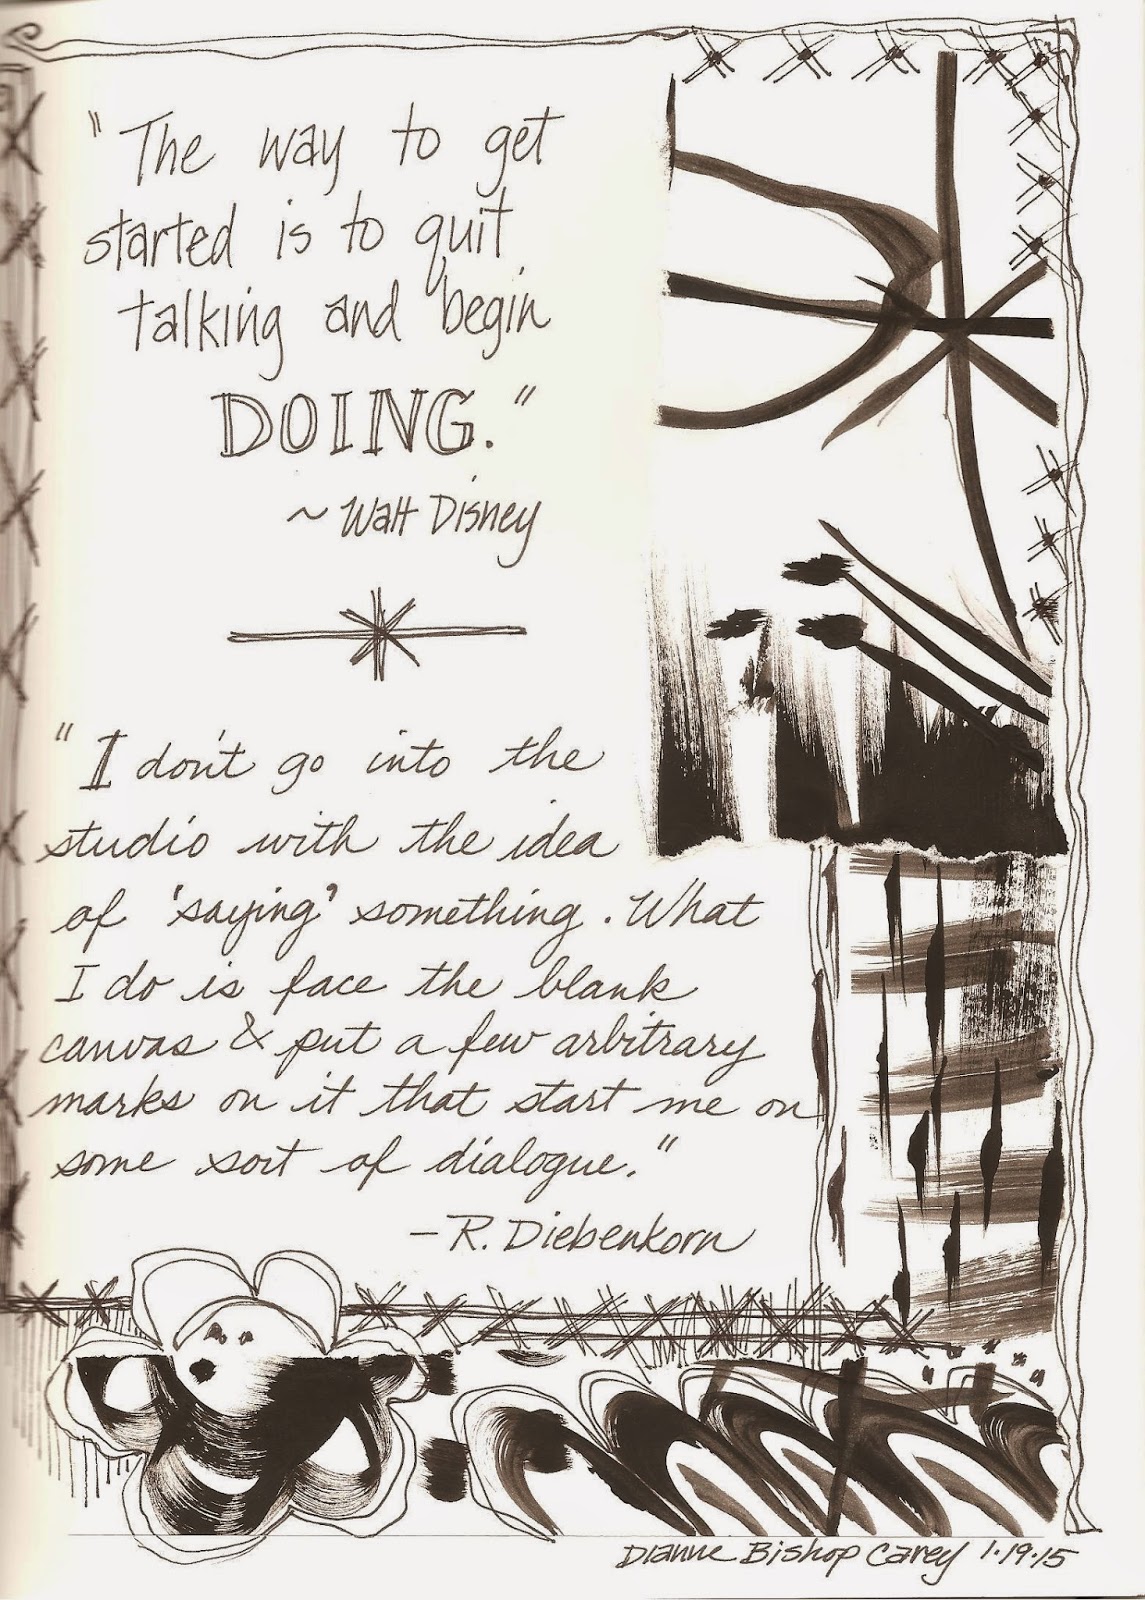 "The way to get
started is to quit
talking and begin
DOING."
~ Walt Disney
"I don't go into the
studio with the idea
of 'saying' something. What
I do is face the blank
canvas & put a few arbitrary
marks on it that start me on
some sort of dialogue."
- R. Diebenkorn
Dianne Bishop Carey 1.19.15